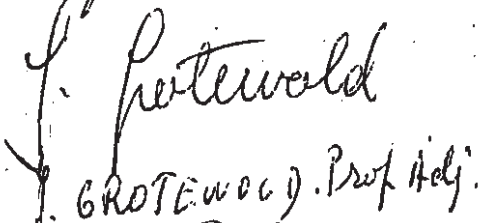 J. Grotewold
J. GROTEWOLD. Prof Adj.